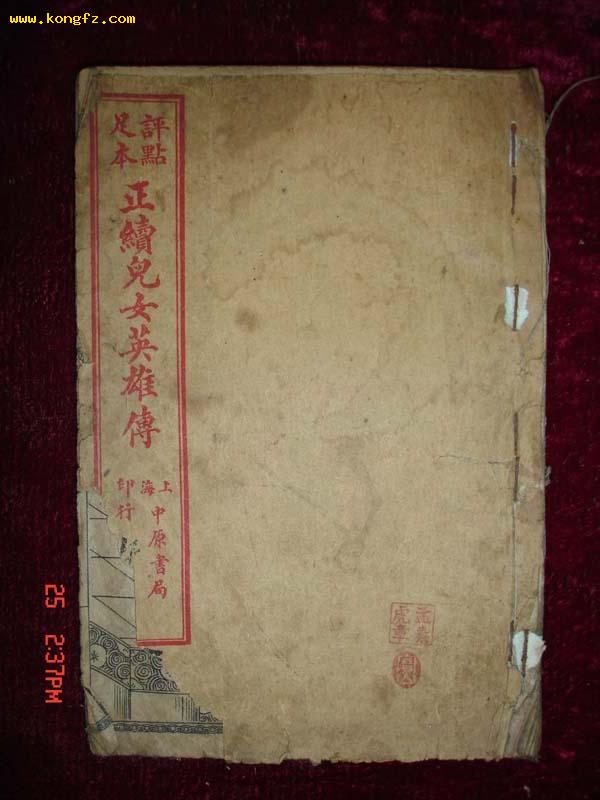 www.kongfz.com
評點
足本
正續兒女英雄傳
上海
中原書局
印行
25 2:37PM